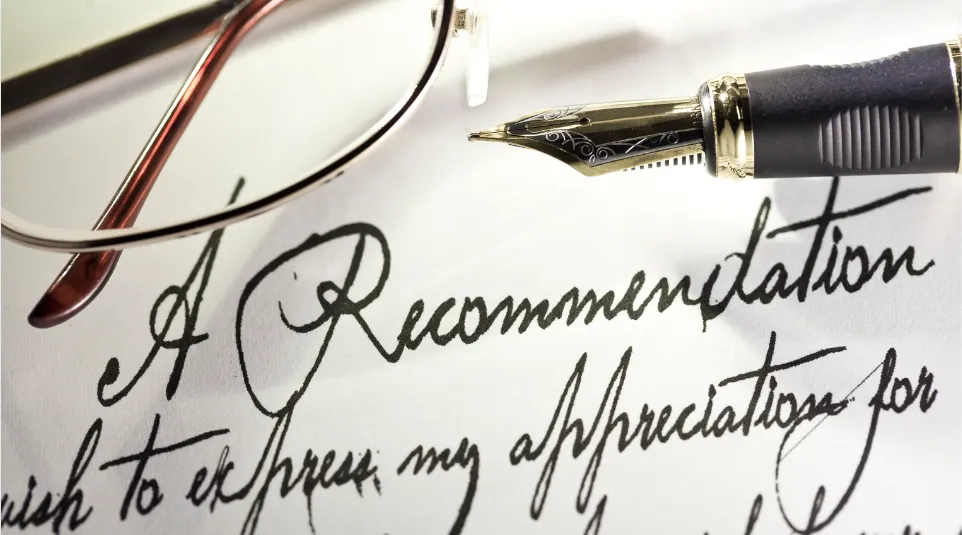 A Recommendation
wish to express my appreciation for